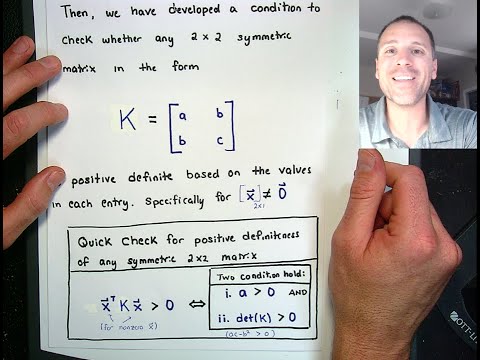 Then, we have developed a condition to
check whether any 2×2 symmetric
matrix in the form
K = [a b
b c]
positive definite based on the values
in each entry. Specifically for [x⃗]≠0⃗
2×1
Quick Check for positive definiteness
of any symmetric 2×2 matrix
x⃗ᵀKx⃗ > 0 ⇔
(for nonzero x⃗)
Two condition hold:
i. a > 0 AND
ii. det(K) > 0
(ac-b² > 0)